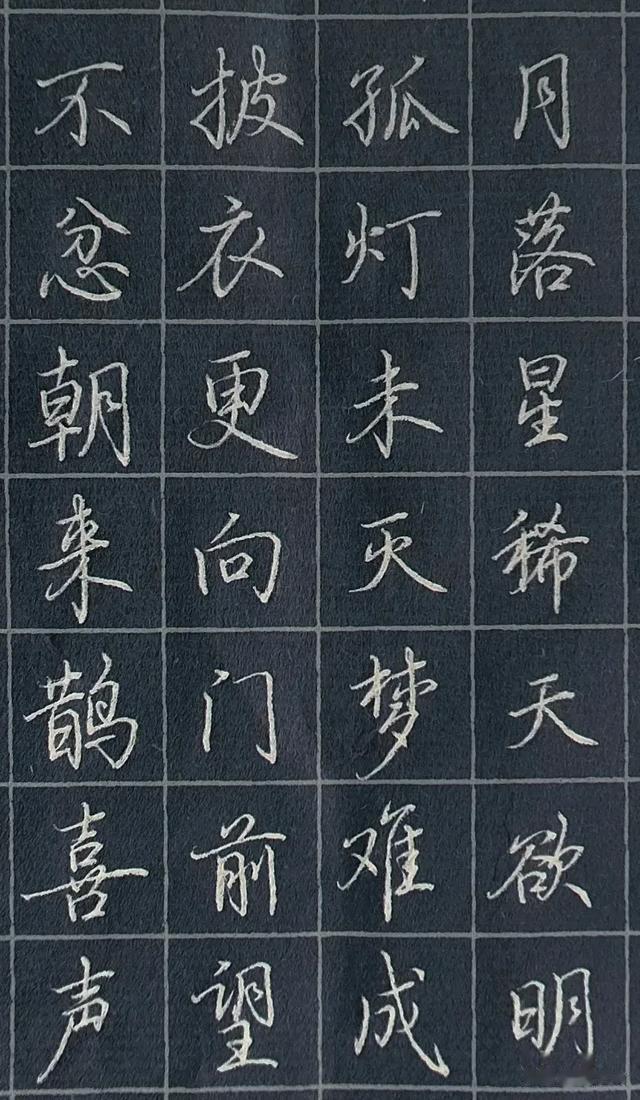 月落星稀天欲明
孤灯未灭梦难成
披衣更向门前望
不忿朝来鹊喜声